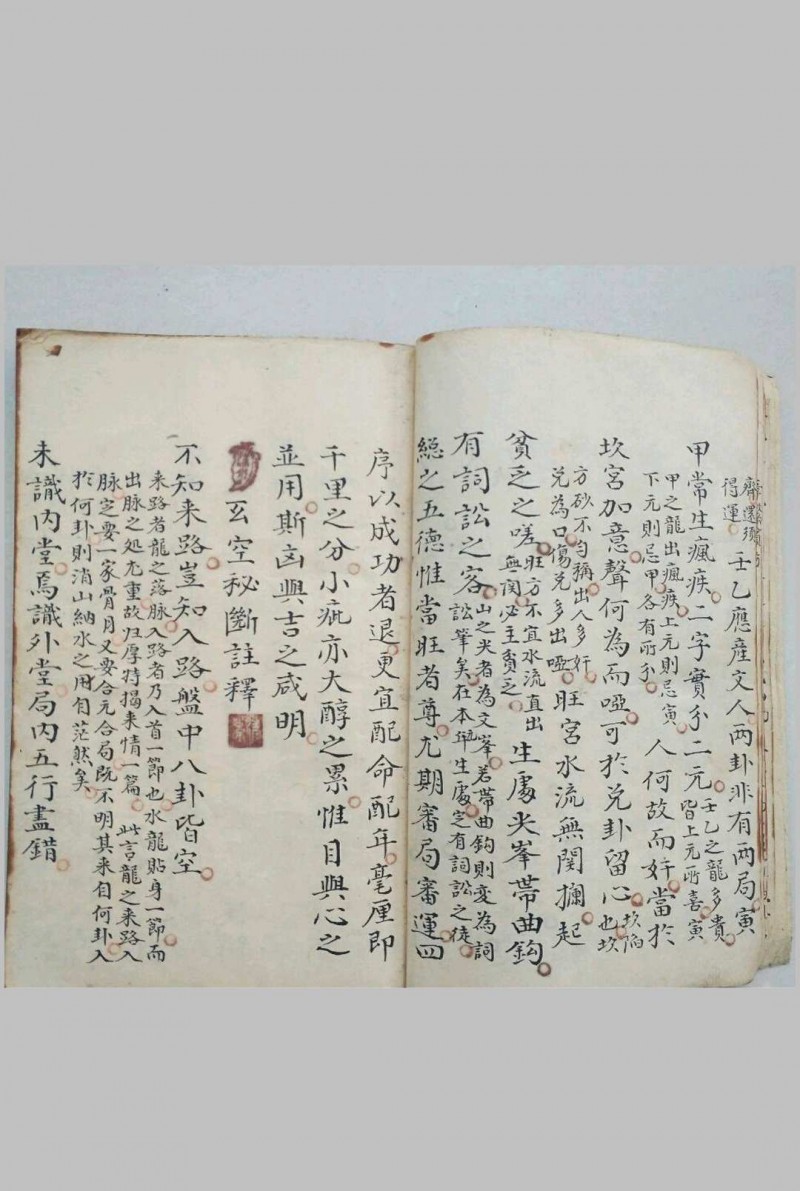 還須
得運
壬乙應產文人兩卦非有兩局寅
甲常生瘋疾二字實分二元
壬乙之龍多貴
皆上元所喜寅
甲之龍出瘋疾上元則忌寅
下元則忌甲各有所分
人何故而奸當於
坎宮加意聲何為而啞可於兌卦留心
坎陷
也坎
方砂不勻稱出人多奸
兌為口傷兌多出啞
旺宮水流無関攔起
貧乏之嗟
旺方不宜水流直出
無関必主貧乏
生處尖峯帶曲鈎
有詞訟之客
山之尖者為文峯若帶曲鈎則变為詞
訟筆矣在本年生處定有詞訟之徒
縂之五德惟當旺者尊尤期審局審運四
序以成功者退更宜配命配年毫厘即
千里之分小疵亦大醇之累惟目與心之
並用斯凶與吉之咸明
玄空秘斷註釋
不知来路豈知入路盤中八卦皆空
来路者龍之落脉入路者乃入首一節也水龍貼身一節而
出脉之処尤重故归厚特揭来情一篇 此言龍之来路入
脉定要一家骨月又要合元合局既不明其来自何卦入
於何卦則消山納水之用自茫然矣
未識內堂焉識外堂局內五行盡錯